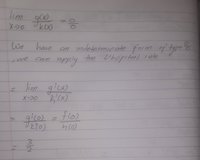 lim g(x) / h(x) = 0/0
x→0
We have an indeterminate form of type 0/0
, we can apply the L'hopital rule
= lim g'(x) / h'(x)
x→0
= g'(0) / h'(0) = f(0) / h(0)